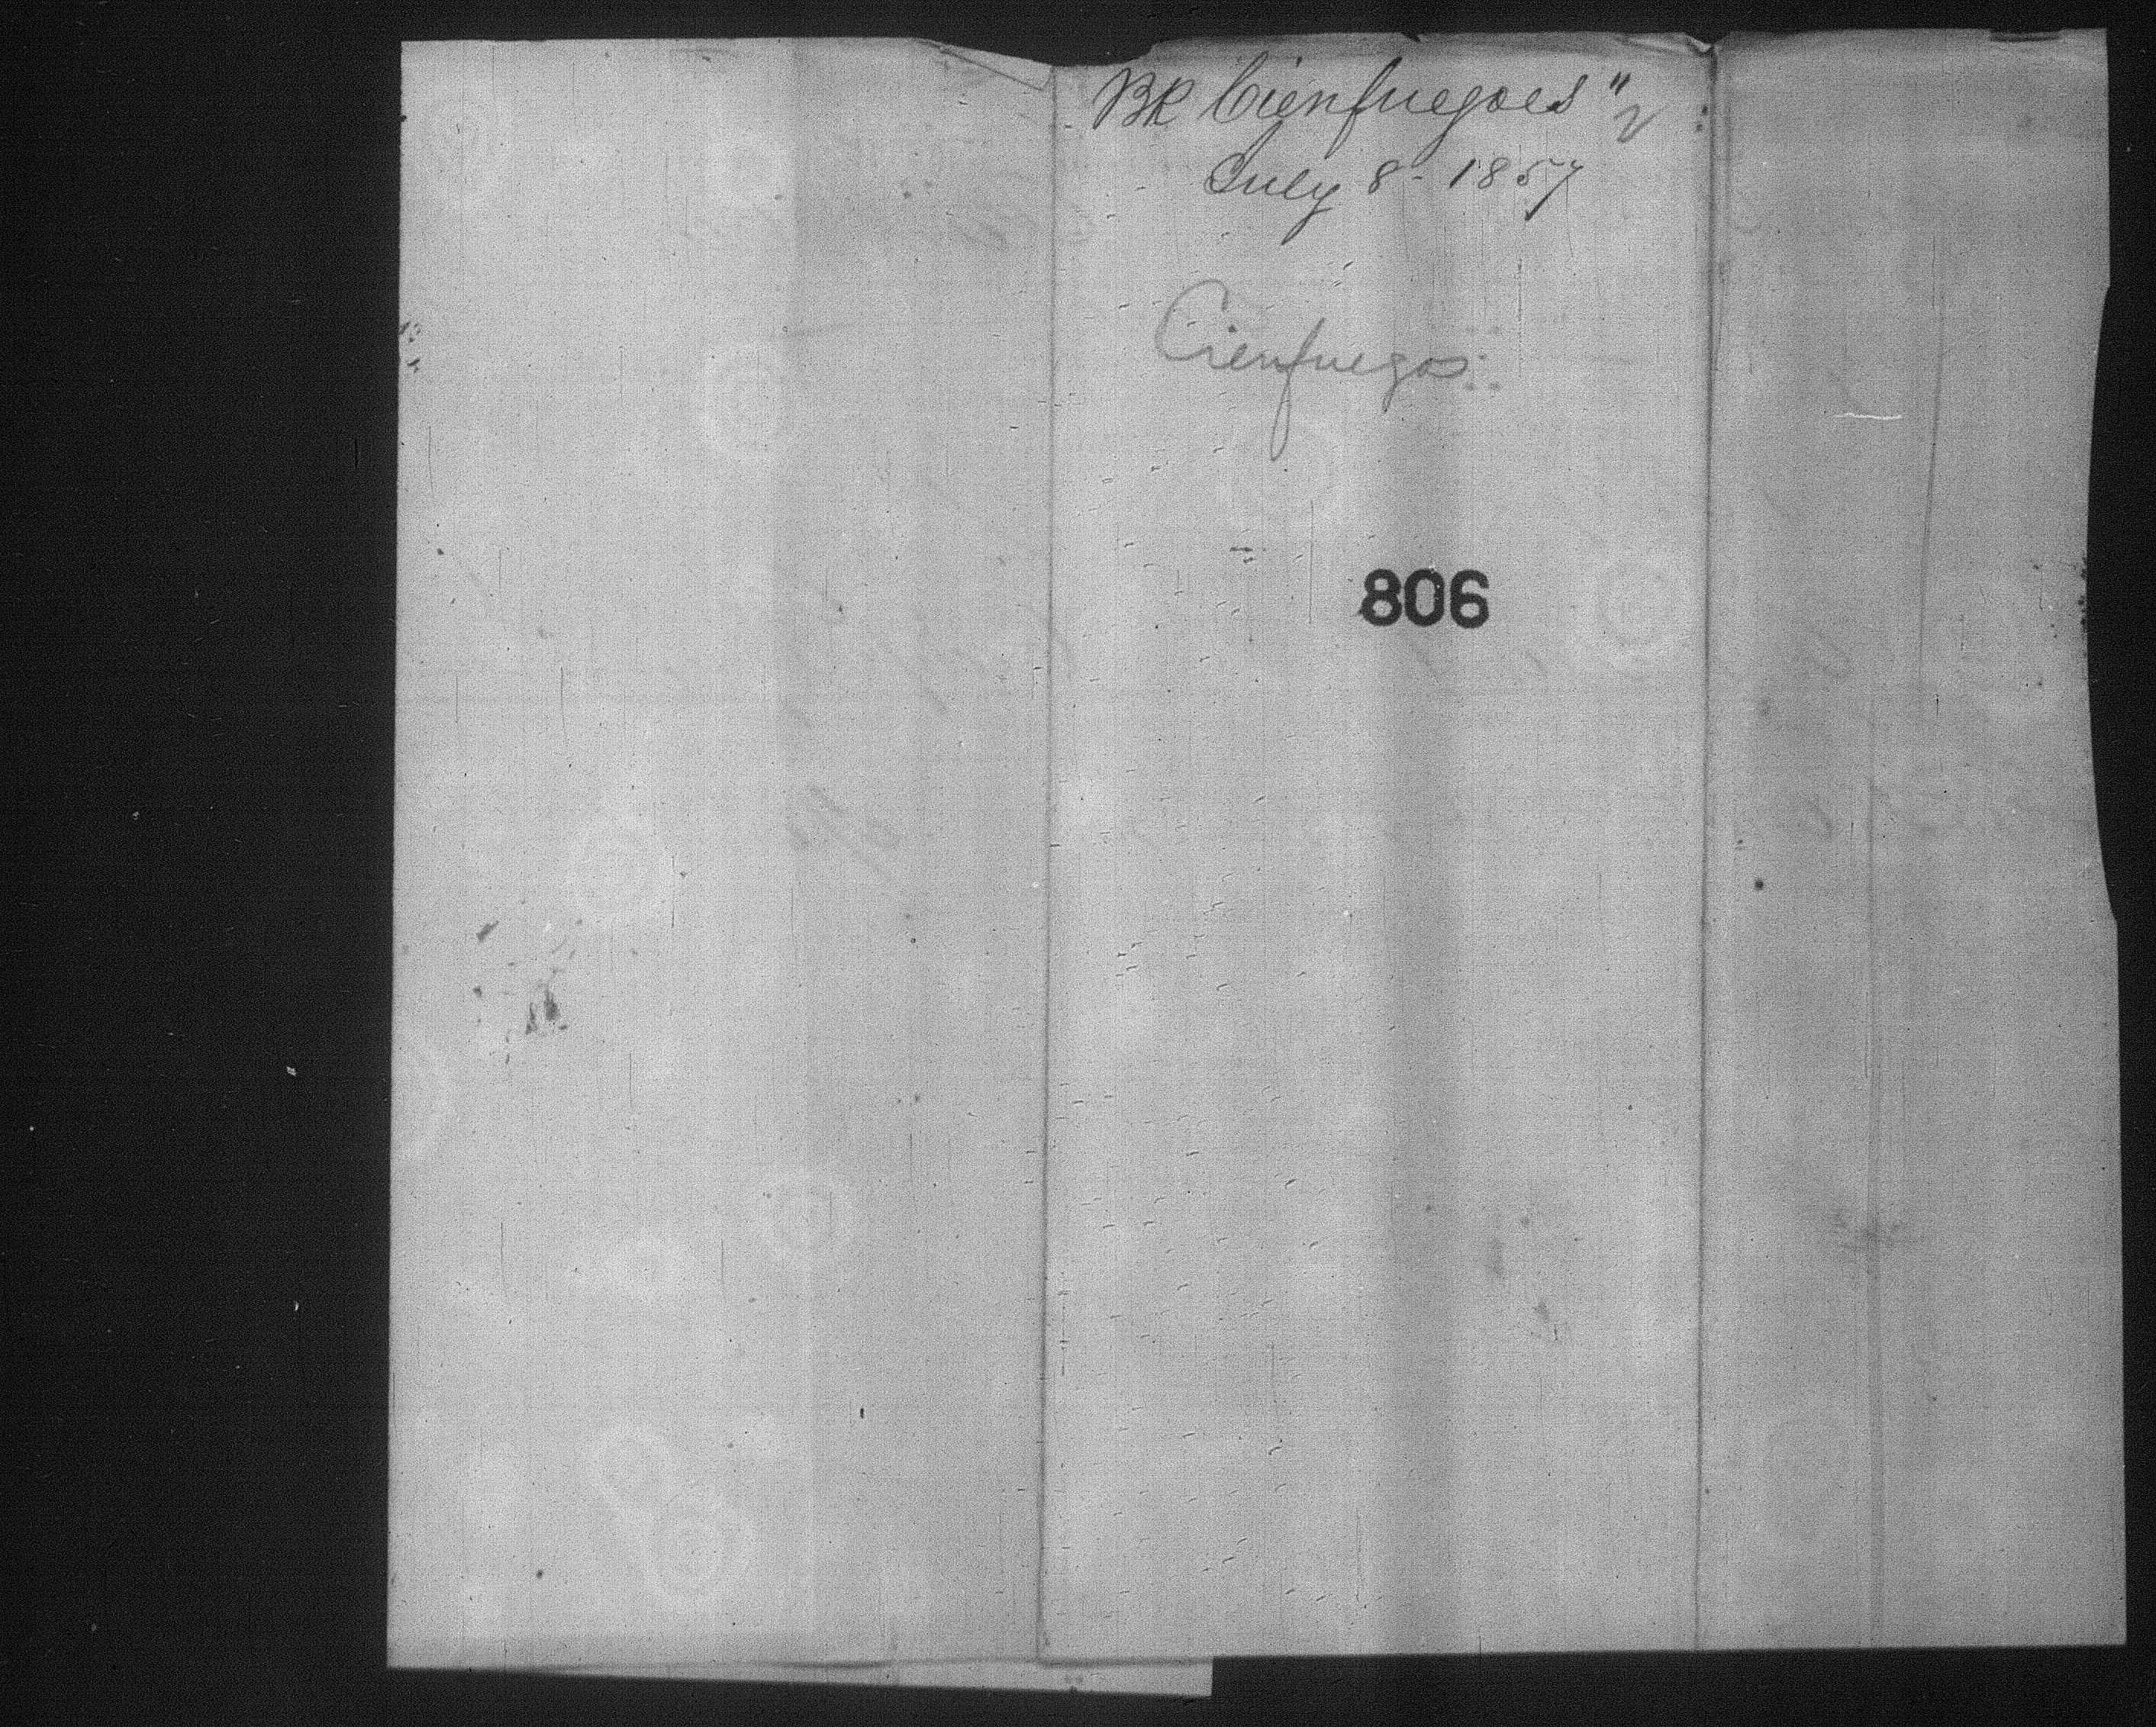 BR Cienfuegoes "
July 8 - 1857
Cienfuegos
806